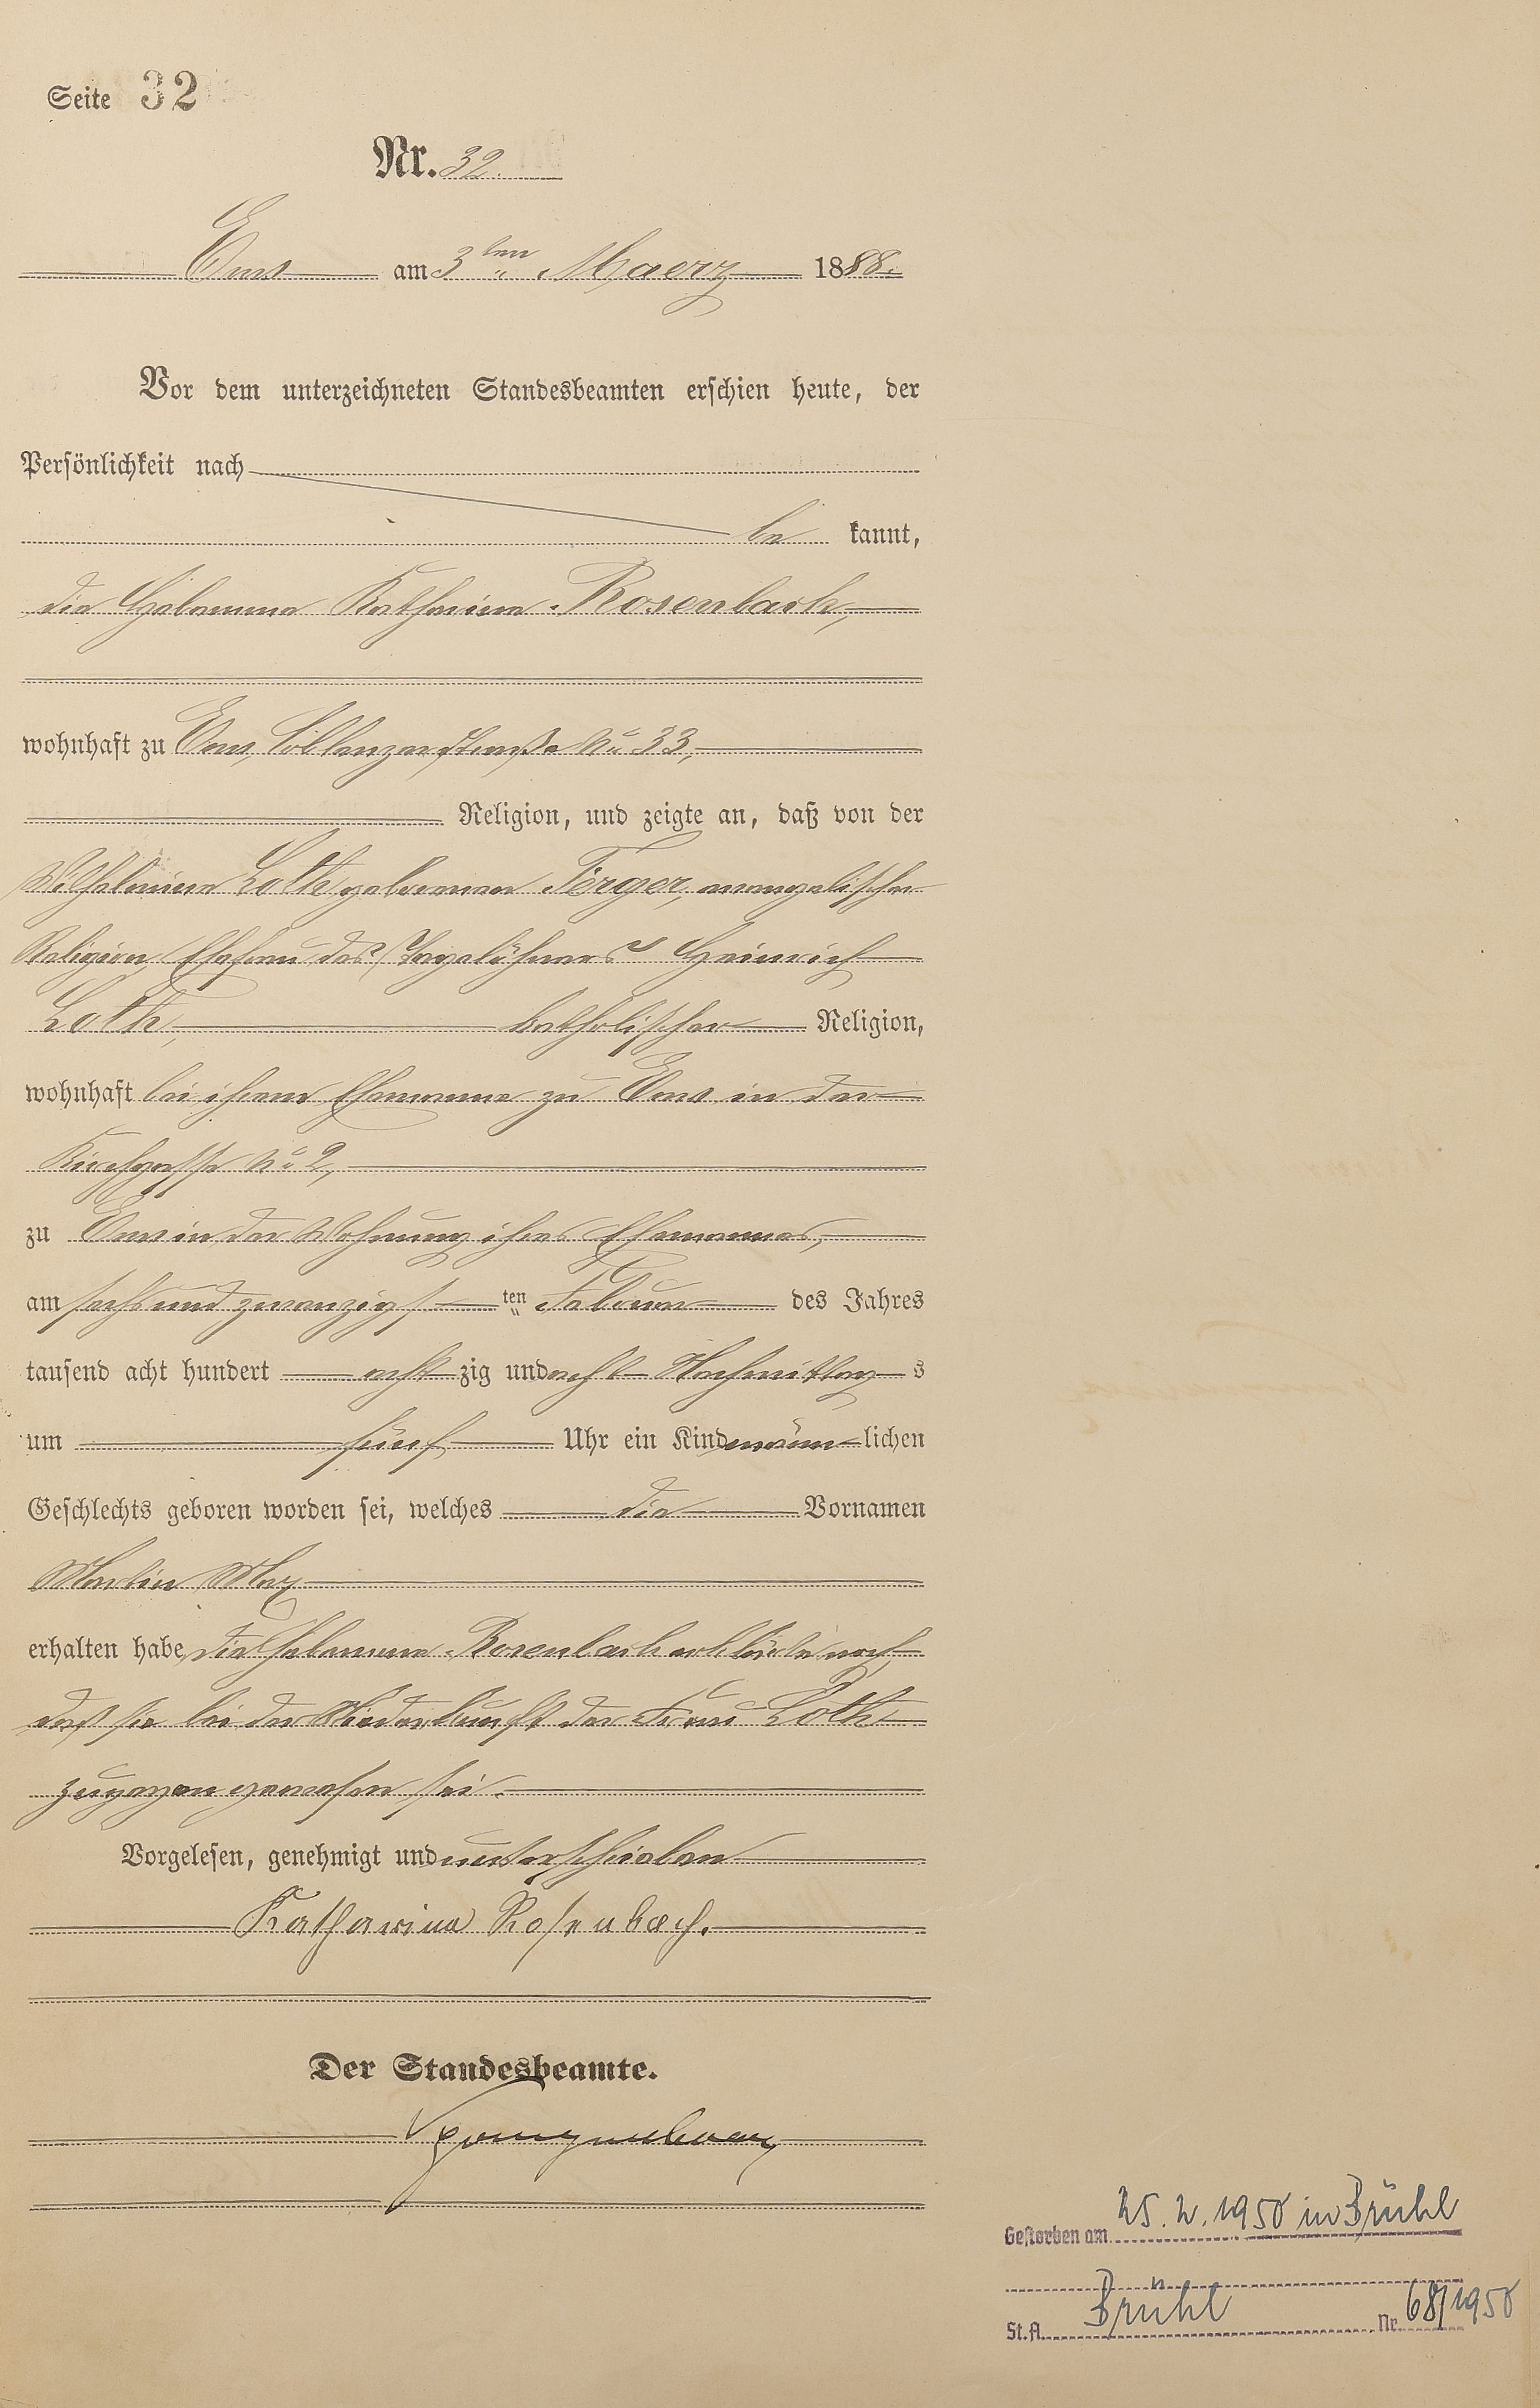 Seite 32
Nr. 32.
Ems am 3ten Maerz 1888.
Vor dem unterzeichneten Standesbeamten erschien heute, der
Persönlichkeit nach
be kannt,
die Hebamme Katharina Rosenbach,
wohnhaft zu Ems, Coblenzerstraße No 33,
Religion, und zeigte an, daß von der
Wilhelmine Loth geborenen Ferger, evangelischer
Religion, Ehefrau des Tagelöhners Heinrich
Loth, katholischer Religion,
wohnhaft bei ihrem Ehemanne zu Ems in der
Kirchgasse No 2,
zu Ems in der Wohnung ihres Ehemannes,
am sechs und zwanzigsten Februar des Jahres
tausend acht hundert acht zig und acht Nachmittag s
um fünf Uhr ein Kind männ lichen
Geschlechts geboren worden sei, welches die Vornamen
Martin Max
erhalten habe, die Hebamme Rosenbach erklärte noch,
daß sie bei der Niederkunft der Frau Loth
zugegen gewesen sei.
Vorgelesen, genehmigt und unterschrieben
Katharina Rosenbach.
Der Standesbeamte.
Gestorben am 25.2.1950 in Brühl
St.A. Brühl Nr. 68/1950